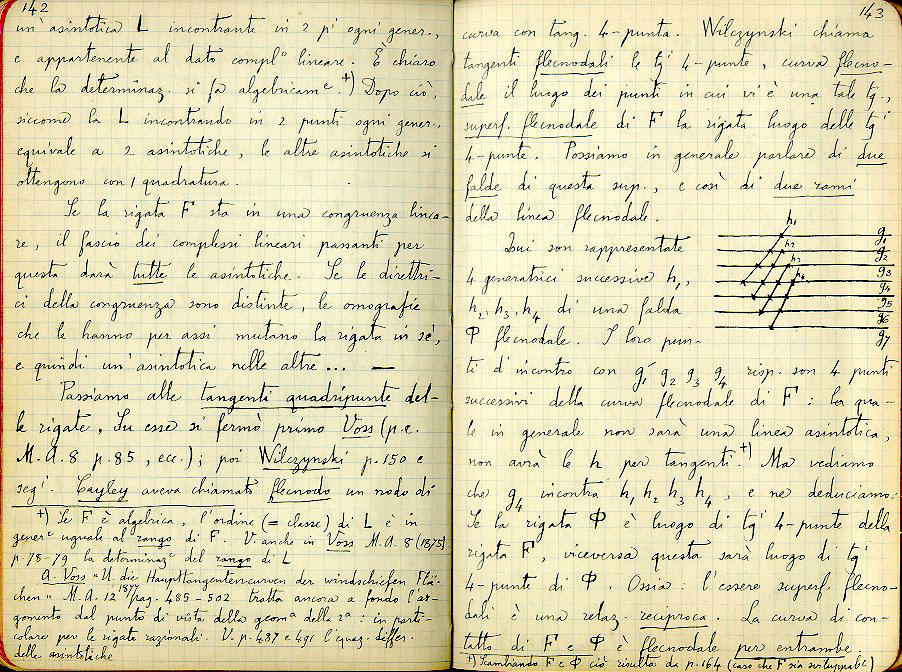 142
un'asintotica L incontrante in 2 pi ogni gener.,
e appartenente al dato complo lineare. È chiaro
che la determinaz. si fa algebricame. +) Dopo ciò,
siccome la L incontrando in 2 punti ogni gener.,
equivale a 2 asintotiche, le altre asintotiche si
ottengono con 1 quadratura.
Se la rigata F sta in una congruenza linea-
re, il fascio dei complessi lineari passanti per
questa darà tutte le asintotiche. Se le direttri-
ci della congruenza sono distinte, le omografie
che le hanno per assi mutano la rigata in sè,
e quindi un'asintotica nelle altre ... —
Passiamo alle tangenti quadripunte del-
le rigate. Su esse si fermò primo Voss (p.e.
M.A. 8 p. 85, ecc.); poi Wilczynski p. 150 e
segi. Cayley aveva chiamato flecnodo un nodo di
+) Se F è algebrica, l'ordine (= classe) di L è in
genere uguale al rango di F. V. anche in Voss M.A. 8 (1875)
p. 78-79 la determinaze del rango di L
A. Voss "U. die Haupttangentencurven der windschiefen Flä-
chen" M.A. 12 1877 pag. 485-502 tratta ancora a fondo l'ar-
gomento dal punto di vista della geoma della ra: in parti-
colare per le rigate razionali. V. p. 487 e 491 l'equaz. differ.
delle asintotiche
143
curva con tang. 4-punta. Wilczynski chiama
tangenti flecnodali le tgi 4-punte, curva flecno-
dale il luogo dei punti in cui vi è una tale tg.,
superf. flecnodale di F la rigata luogo delle tgi
4-punte. Possiamo in generale parlare di due
falde di questa sup., e così di due rami
della linea flecnodale.
Qui son rappresentate
4 generatrici successive h1,
h2, h3, h4 di una falda
Φ flecnodale. I loro pun-
h1
h2
h3
h4
g1
g2
g3
g4
g5
g6
g7
ti d'incontro con g1 g2 g3 g4 risp. son 4 punti
successivi della curva flecnodale di F: la qua-
le in generale non sarà una linea asintotica,
non avrà le h per tangenti. +) Ma vediamo
che g4 incontra h1 h2 h3 h4, e ne deduciamo:
Se la rigata Φ è luogo di tgi 4-punte della
rigata F, viceversa questa sarà luogo di tgi
4-punte di Φ. Ossia: l'essere superf. flecno-
dali è una relaz. reciproca. La curva di con-
tatto di F e Φ è flecnodale per entrambe
+) Scambiando F e Φ ciò risulta da p. 164 (caso che F sia sviluppabile)